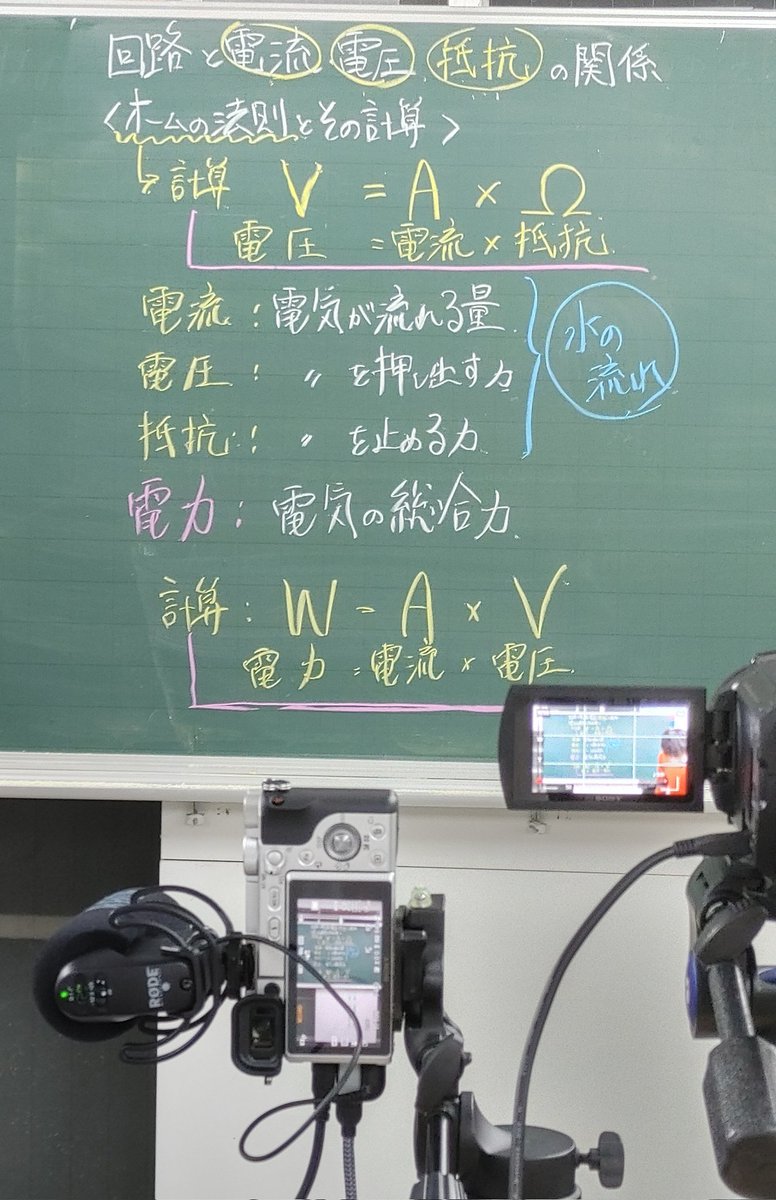 回路と電流 電圧 抵抗の関係
〈ホームの法則とその計算〉
計算 V = A × Ω
電圧 = 電流 × 抵抗
電流：電気が流れる量
電圧：〃を押し出す力
抵抗：〃を止める力
水の
流れ
電力：電気の総合力
計算：W = A × V
電力 = 電流 × 電圧
SONY
RODE